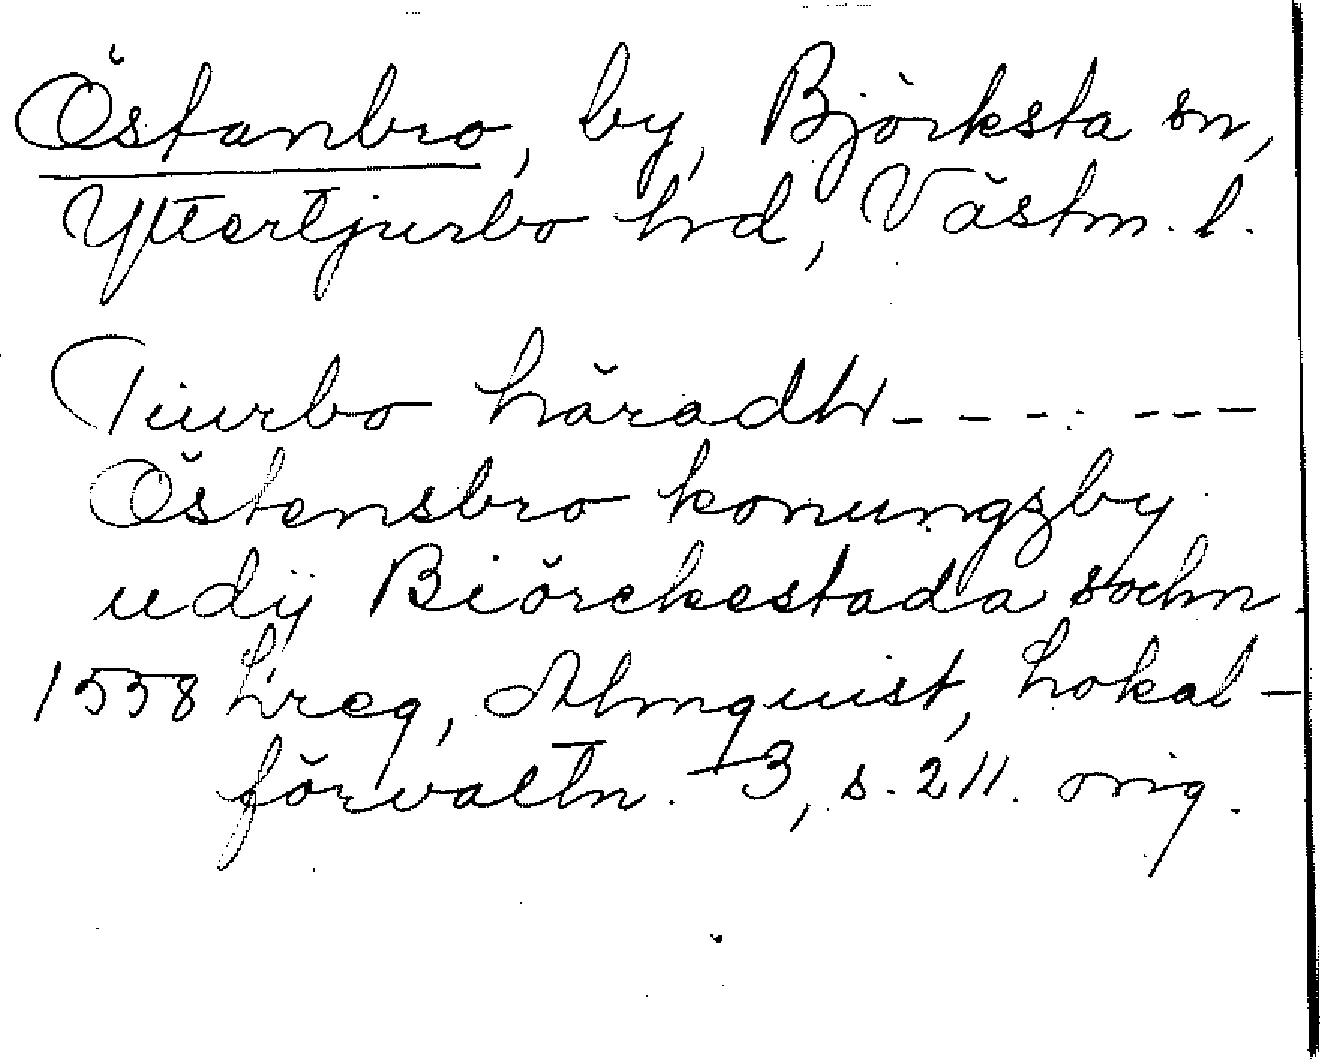 Östanbro, by, Björksta sn,
Yttertjurbo hd, Västm. l.
Tiurbo häradh - - - - - - -
Östensbro konungzby
udij Biörckestada sochn.
1538 Lreg, Almquist, Lokal-
förvaltn. 3, s. 211. orig.